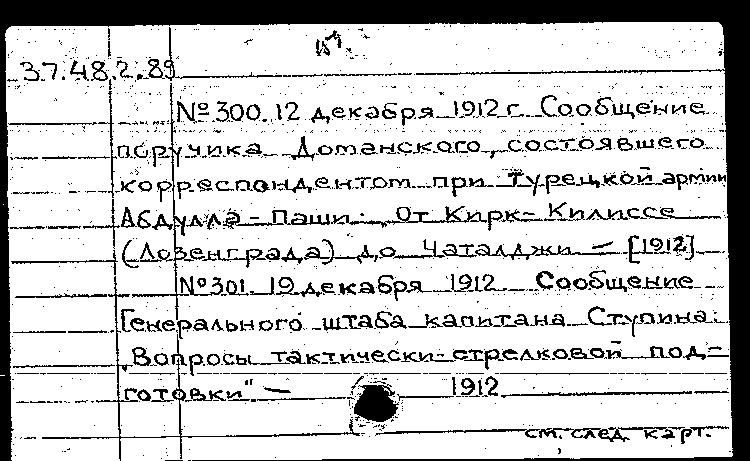 37.48.2.89
№300. 12 декабря 1912 г. Сообщение
поручика Доманского, состоявшего
корреспондентом при Турецкой армии
Абдулла-Паши: „От Кирк-Килиссе
(Лозенграда) до Чаталджи — [1912]
№301. 19 декабря 1912. Сообщение
Генерального штаба капитана Ступина:
„Вопросы тактически-стрелковой под-
готовки" — 1912
см. след. карт.